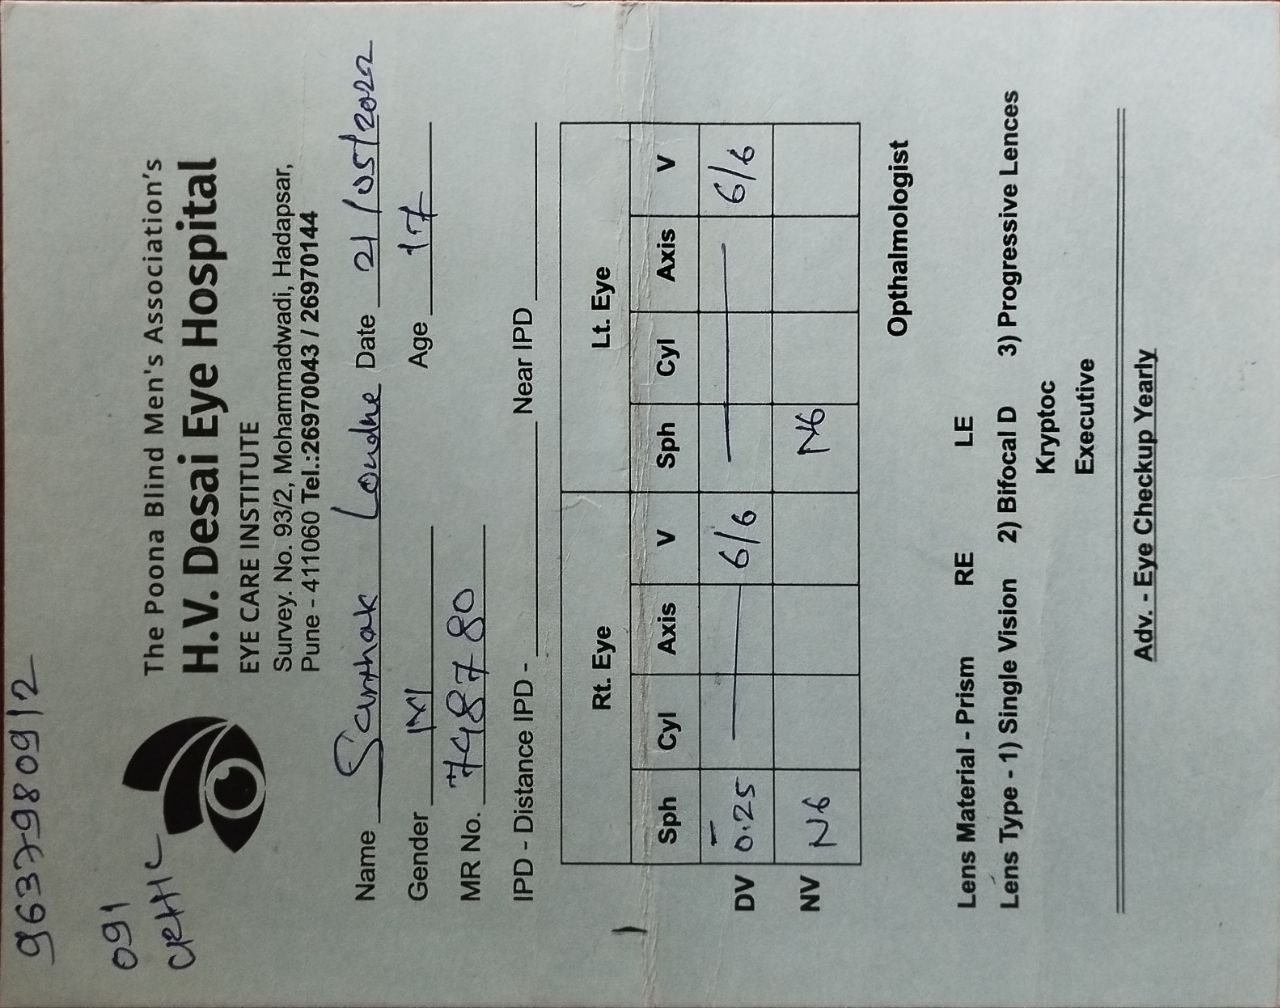 9637980912
091
The Poona Blind Men's Association's
H.V. Desai Eye Hospital
EYE CARE INSTITUTE
Survey. No. 93/2, Mohammadwadi, Hadapsar,
Pune - 411060 Tel.:26970043 / 26970144
Name Sarthak Londhe Date 21/05/2022
Gender M Age 17
MR No. 748780
IPD - Distance IPD - Near IPD
Rt. Eye Lt. Eye
Sph Cyl Axis V Sph Cyl Axis V
DV -0.25 — 6/6 — 6/6
NV N6 N6
Opthalmologist
Lens Material - Prism RE LE
Lens Type - 1) Single Vision 2) Bifocal D 3) Progressive Lences
Kryptoc
Executive
Adv. - Eye Checkup Yearly